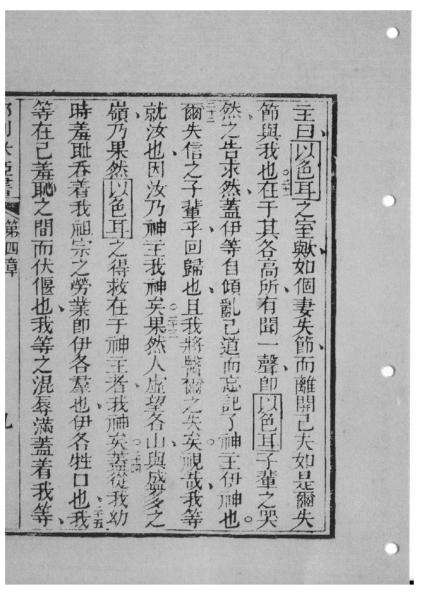 主曰以色耳之室歟如個妻失節而離開己夫如是爾失
節與我也二一在于其各高所有聞一聲卽以色耳子輩之哭
然之告求然蓋伊等自傾亂己道而忘記了神主伊神也
二二爾失信之子輩乎回歸也且我將醫爾之失矣視哉我等
就汝也因汝乃神主我神矣二三果然人虛望各山與盛多之
嶺乃果然以色耳之得救在于神主者我神矣二四蓋從我幼
時羞耻吞着我祖宗之勞業卽伊各羣也伊各牲口也二五我
等在己羞恥之間而伏偃也我等之混辱滿蓋着我等
第四章
九